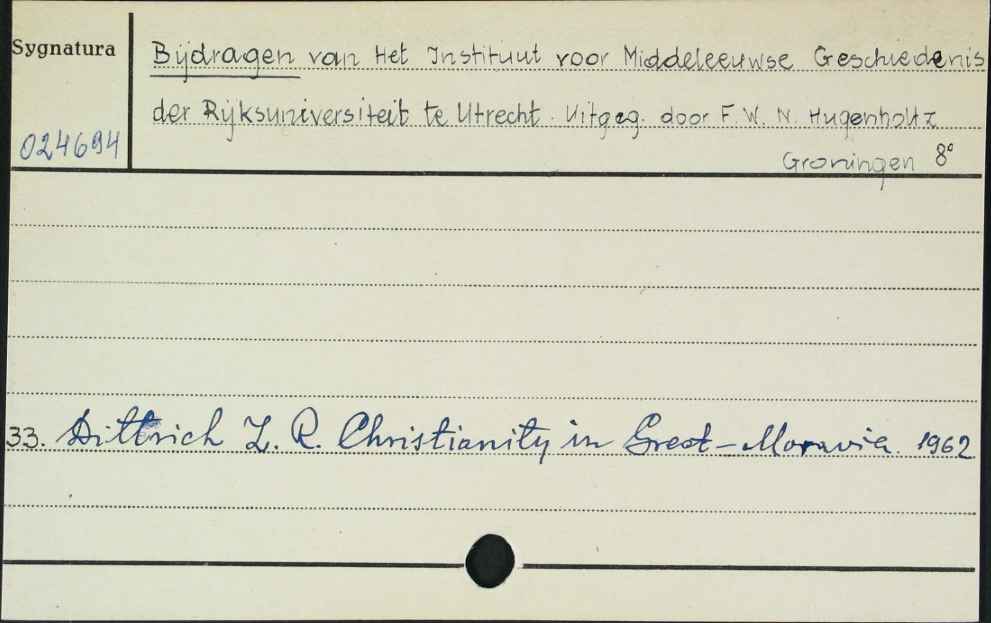 Sygnatura
024694
Bijdragen van Het Instituut voor Middeleeuwse Geschiedenis
der Rijksuniversiteit te Utrecht. Uitgeg. door F. W. N. Hugenholtz
Groningen 8°
33. Dittrich Z. R. Christianity in Great-Moravia. 1962